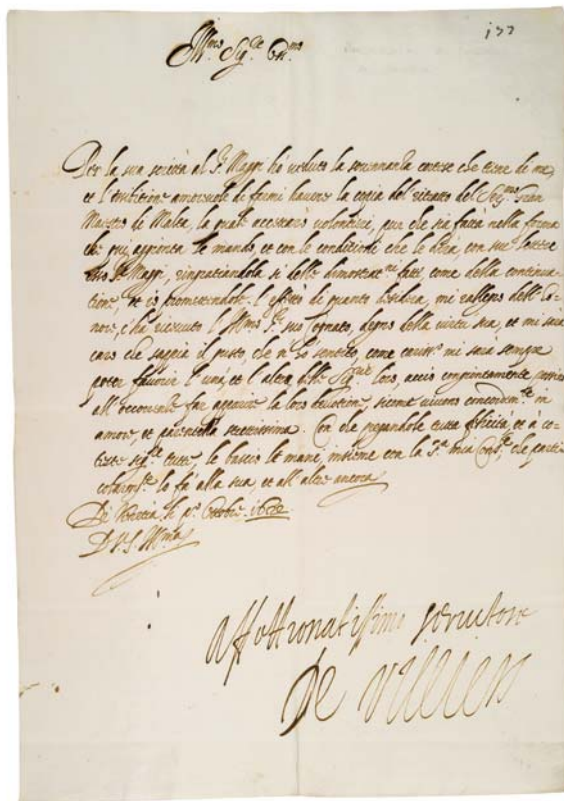 177
Ill.mo Sig.re Oss.mo
Per la sua scritta al S.r Maggi hò veduto la memoria cortese che tiene di me,
et l'intentione amorevole di farmi havere la copia del ritratto del Gran
Maestro di Malta, la qual accettarò volontieri, pur che sia fatta nella forma
che qui aggionta le mando, et con le conditioni che le dirà, con sue lettere
esso S.r Maggi, ringratiandola sì delle dimostrat.ni fatti, come della continua-
tione, et io promettendole l'effetto di quanto desidera, mi rallegro dell'ho-
nore, c'ha ricevuto l'Ill.mo S.r suo Cognato, degno della virtù sua, et mi sarà
caro che sappia il gusto, che n'hò sentito, come mi sarà sempre
poter favorir l'una, et l'altra delle Sig.rie loro, acciò congiuntamente
all'occorrenze far apparire la loro devotione, sicome vivono in
amore, et parentella strettissima. Con che pregandole tutta felicità, et à co-
teste sig.re tutte, le bascio le mani, insieme con la S.ra mia Cons.te, che parti-
colarm.te lo fà alla sua, et all'altre ancora
Di Venetia, li p.o Ottobre
D. V. S. Ill.ma
affettionatissimo servitore
De villiers